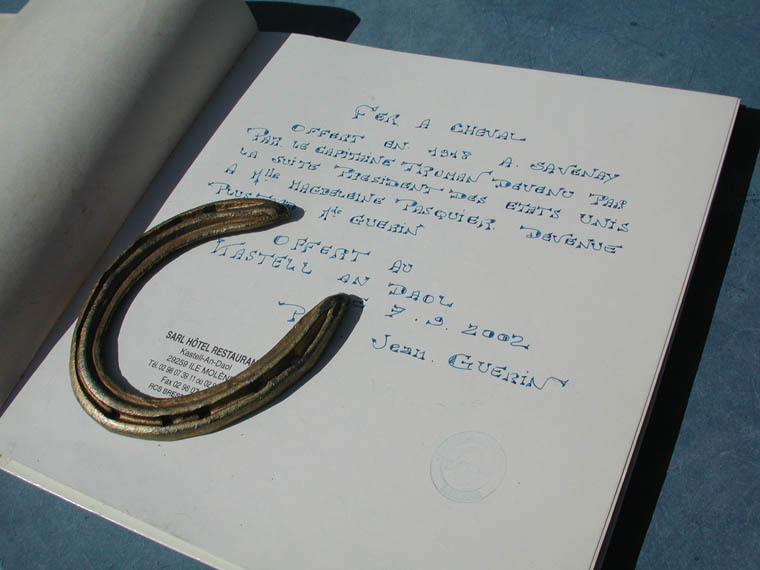 FER A CHEVAL
OFFERT EN 1918 A. SAVENAY
PAR LE CAPITAINE TRUMAN DEVENU PAR
LA SUITE PRESIDENT DES ETATS UNIS
A Mlle MAGDELEINE PASQUIER DEVENUE
PLUS Me GUERIN
OFFERT AU
KASTELL AN DAOL
7.9.2002
Jean. GUERIN
SARL HÔTEL RESTAURAN
Kastell-An-Daol
29259 ILE MOLEN
Tél. 02 98 07 39 11 ou 02 9
Fax 02 98 07
RCS BRES